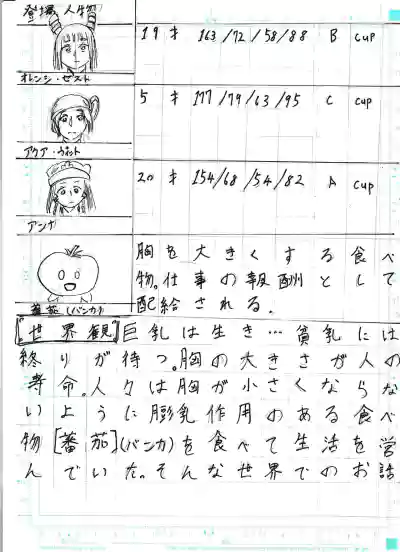 登場人物
19才 163/72/58/88 B cup
オレンジ・ゼスト
5才 177/79/63/95 C cup
アクア・ウォット
20才 154/68/54/82 A cup
アンナ
胸を大きくする食べ
物。仕事の報酬として
配給される.
蕃茄(バンカ)
[世界観]巨乳は生き…貧乳には
終りが待つ。胸の大きさが人の
寿命。人々は胸が小さくならな
いように膨乳作用のある食べ
物[蕃茄](バンカ)を食べて生活を営
んでいた。そんな世界でのお話